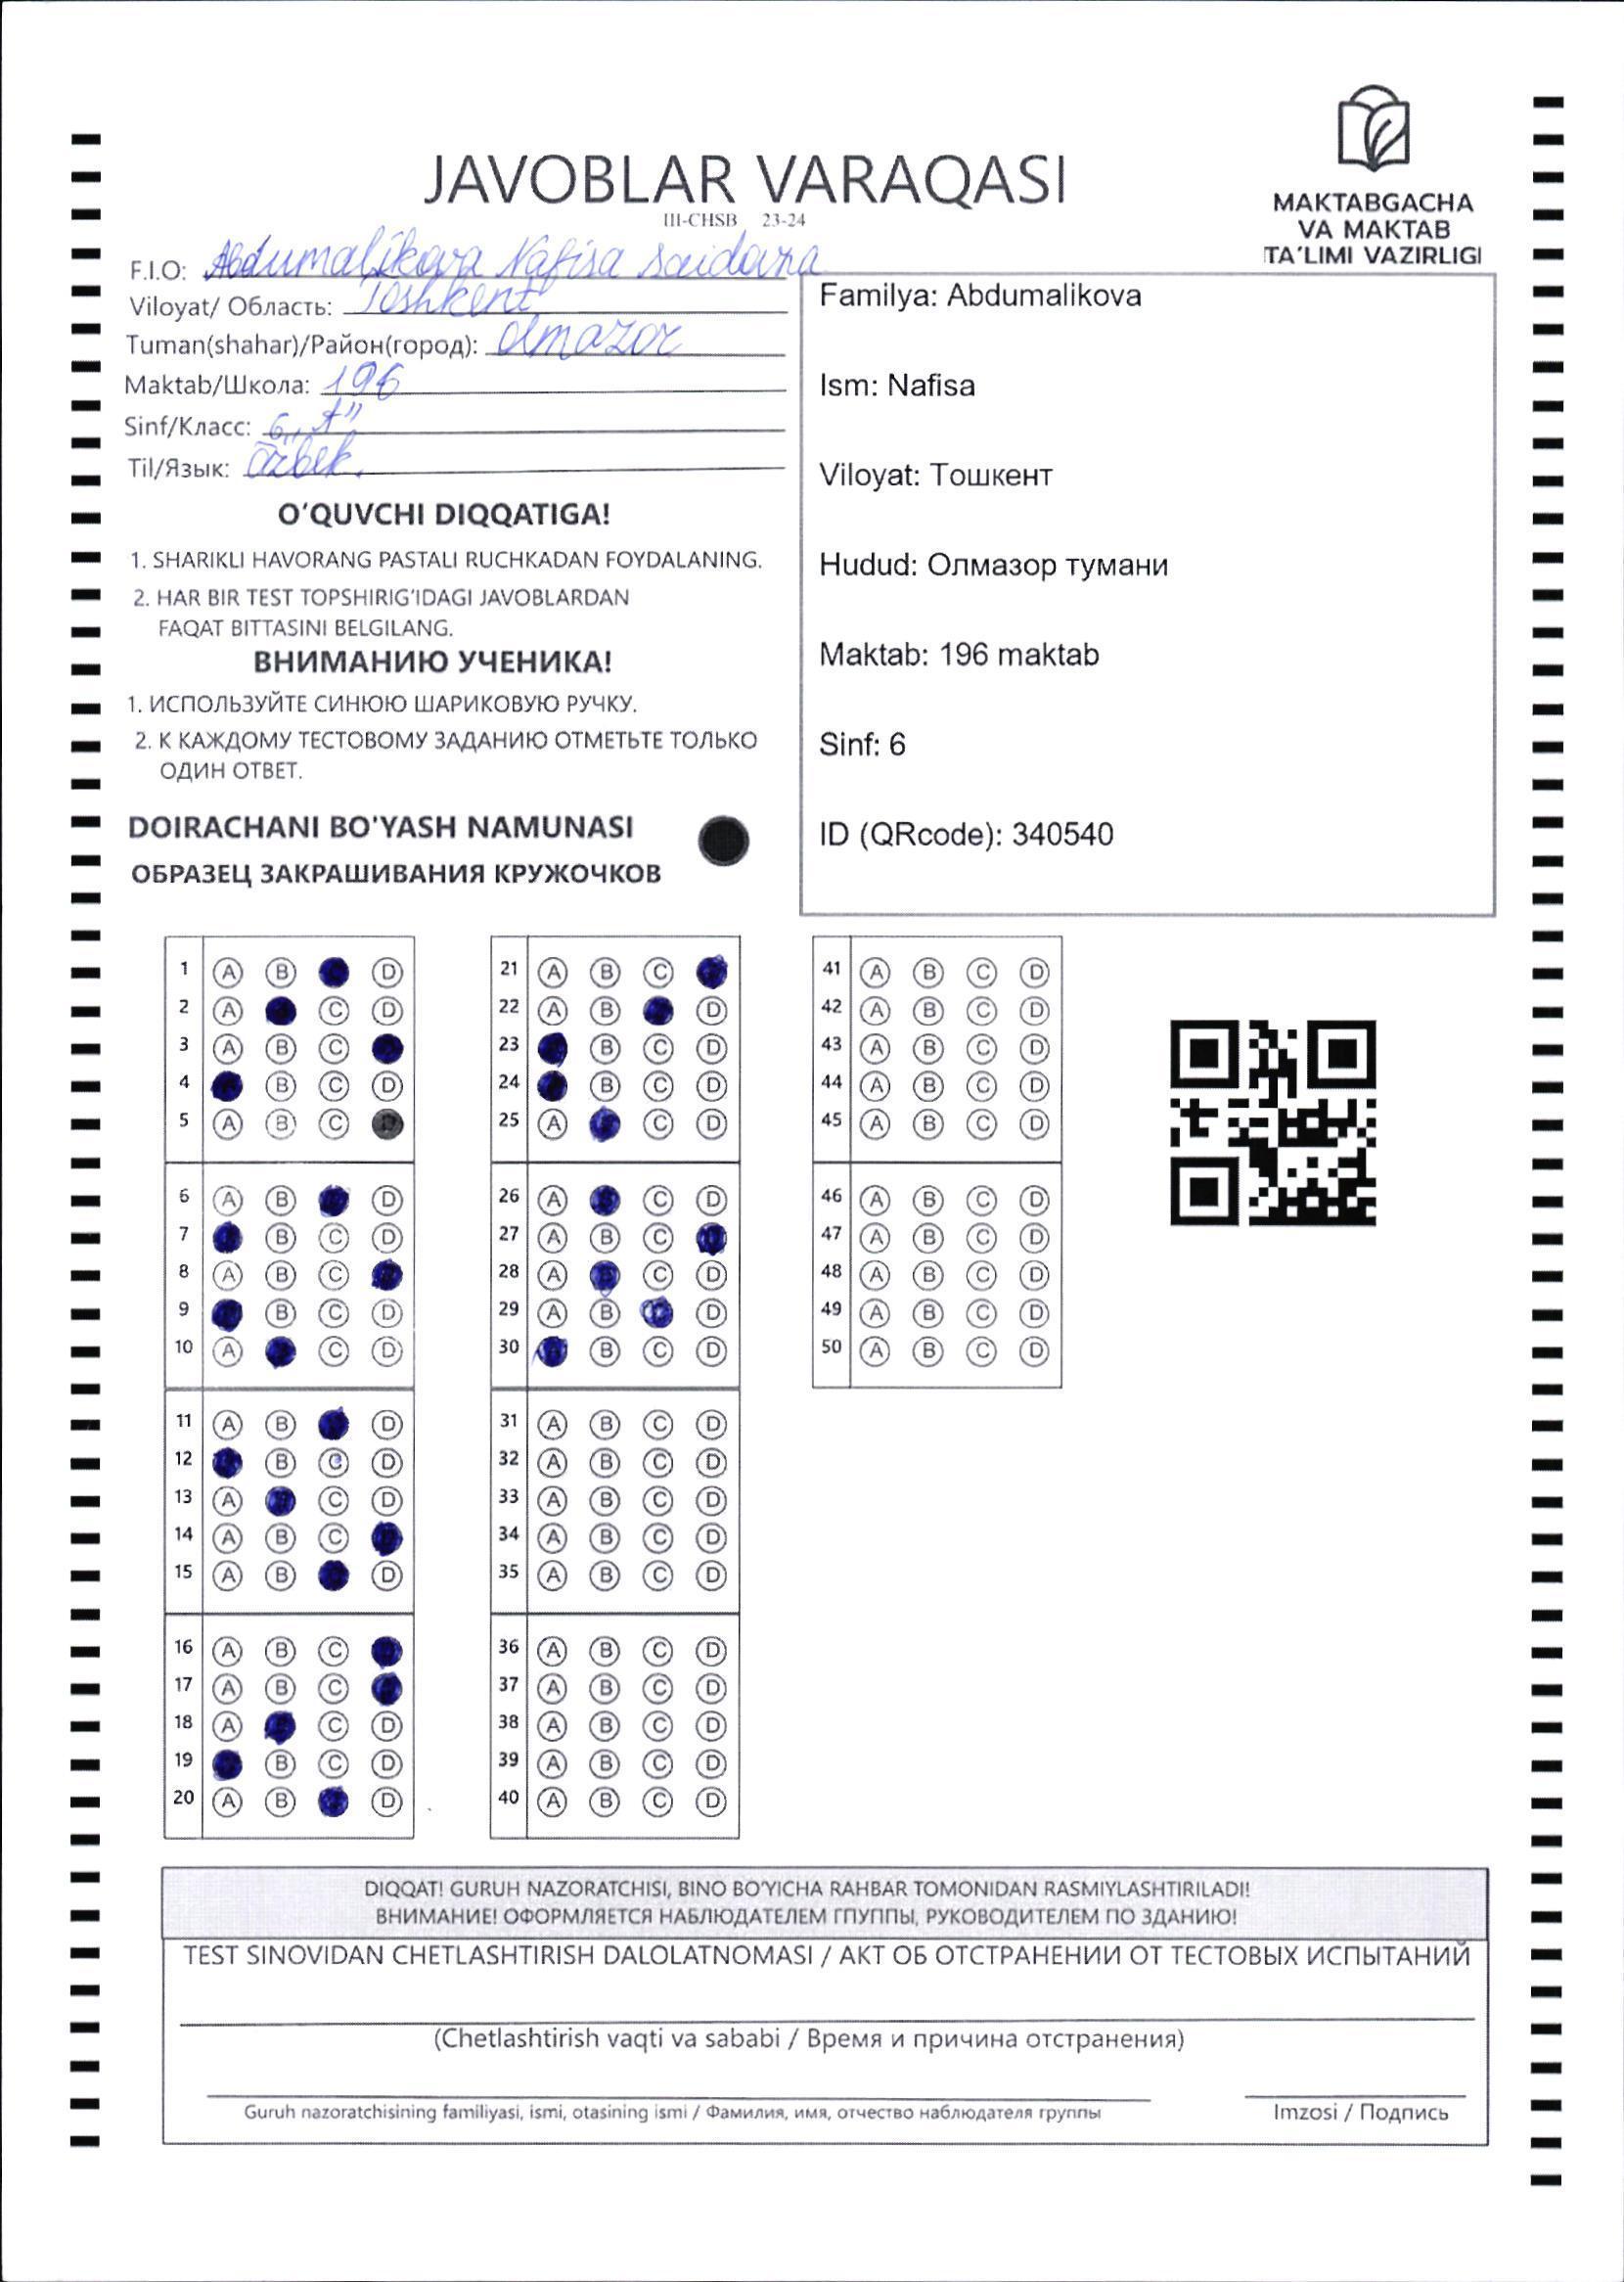 JAVOBLAR VARAQASI
III-CHSB 23-24
MAKTABGACHA
VA MAKTAB
TA'LIMI VAZIRLIGI
F.I.O: Abdumalikova Nafisa Saidovna
Viloyat/ Область: Toshkent
Tuman(shahar)/Район(город): Olmazor
Maktab/Школа: 196
Sinf/Класс: 6 „A"
Til/Язык: Özbek.
O'QUVCHI DIQQATIGA!
1. SHARIKLI HAVORANG PASTALI RUCHKADAN FOYDALANING.
2. HAR BIR TEST TOPSHIRIG'IDAGI JAVOBLARDAN
FAQAT BITTASINI BELGILANG.
ВНИМАНИЮ УЧЕНИКА!
1. ИСПОЛЬЗУЙТЕ СИНЮЮ ШАРИКОВУЮ РУЧКУ.
2. К КАЖДОМУ ТЕСТОВОМУ ЗАДАНИЮ ОТМЕТЬТЕ ТОЛЬКО
ОДИН ОТВЕТ.
DOIRACHANI BO'YASH NAMUNASI
ОБРАЗЕЦ ЗАКРАШИВАНИЯ КРУЖОЧКОВ
Familya: Abdumalikova
Ism: Nafisa
Viloyat: Тошкент
Hudud: Олмазор тумани
Maktab: 196 maktab
Sinf: 6
ID (QRcode): 340540
1 A B D
2 A C D
3 A B C
4 B C D
5 A B C D
6 A B D
7 B C D
8 A B C
9 B C D
10 A C D
11 A B D
12 B C D
13 A C D
14 A B C
15 A B D
16 A B C
17 A B C
18 A C D
19 B C D
20 A B D
21 A B C
22 A B D
23 B C D
24 B C D
25 A C D
26 A C D
27 A B C
28 A B C D
29 A B D
30 B C D
31 A B C D
32 A B C D
33 A B C D
34 A B C D
35 A B C D
36 A B C D
37 A B C D
38 A B C D
39 A B C D
40 A B C D
41 A B C D
42 A B C D
43 A B C D
44 A B C D
45 A B C D
46 A B C D
47 A B C D
48 A B C D
49 A B C D
50 A B C D
DIQQAT! GURUH NAZORATCHISI, BINO BO'YICHA RAHBAR TOMONIDAN RASMIYLASHTIRILADI!
ВНИМАНИЕ! ОФОРМЛЯЕТСЯ НАБЛЮДАТЕЛЕМ ГПУППЫ, РУКОВОДИТЕЛЕМ ПО ЗДАНИЮ!
TEST SINOVIDAN CHETLASHTIRISH DALOLATNOMASI / АКТ ОБ ОТСТРАНЕНИИ ОТ ТЕСТОВЫХ ИСПЫТАНИЙ
(Chetlashtirish vaqti va sababi / Время и причина отстранения)
Guruh nazoratchisining familiyasi, ismi, otasining ismi / Фамилия, имя, отчество наблюдателя группы
Imzosi / Подпись